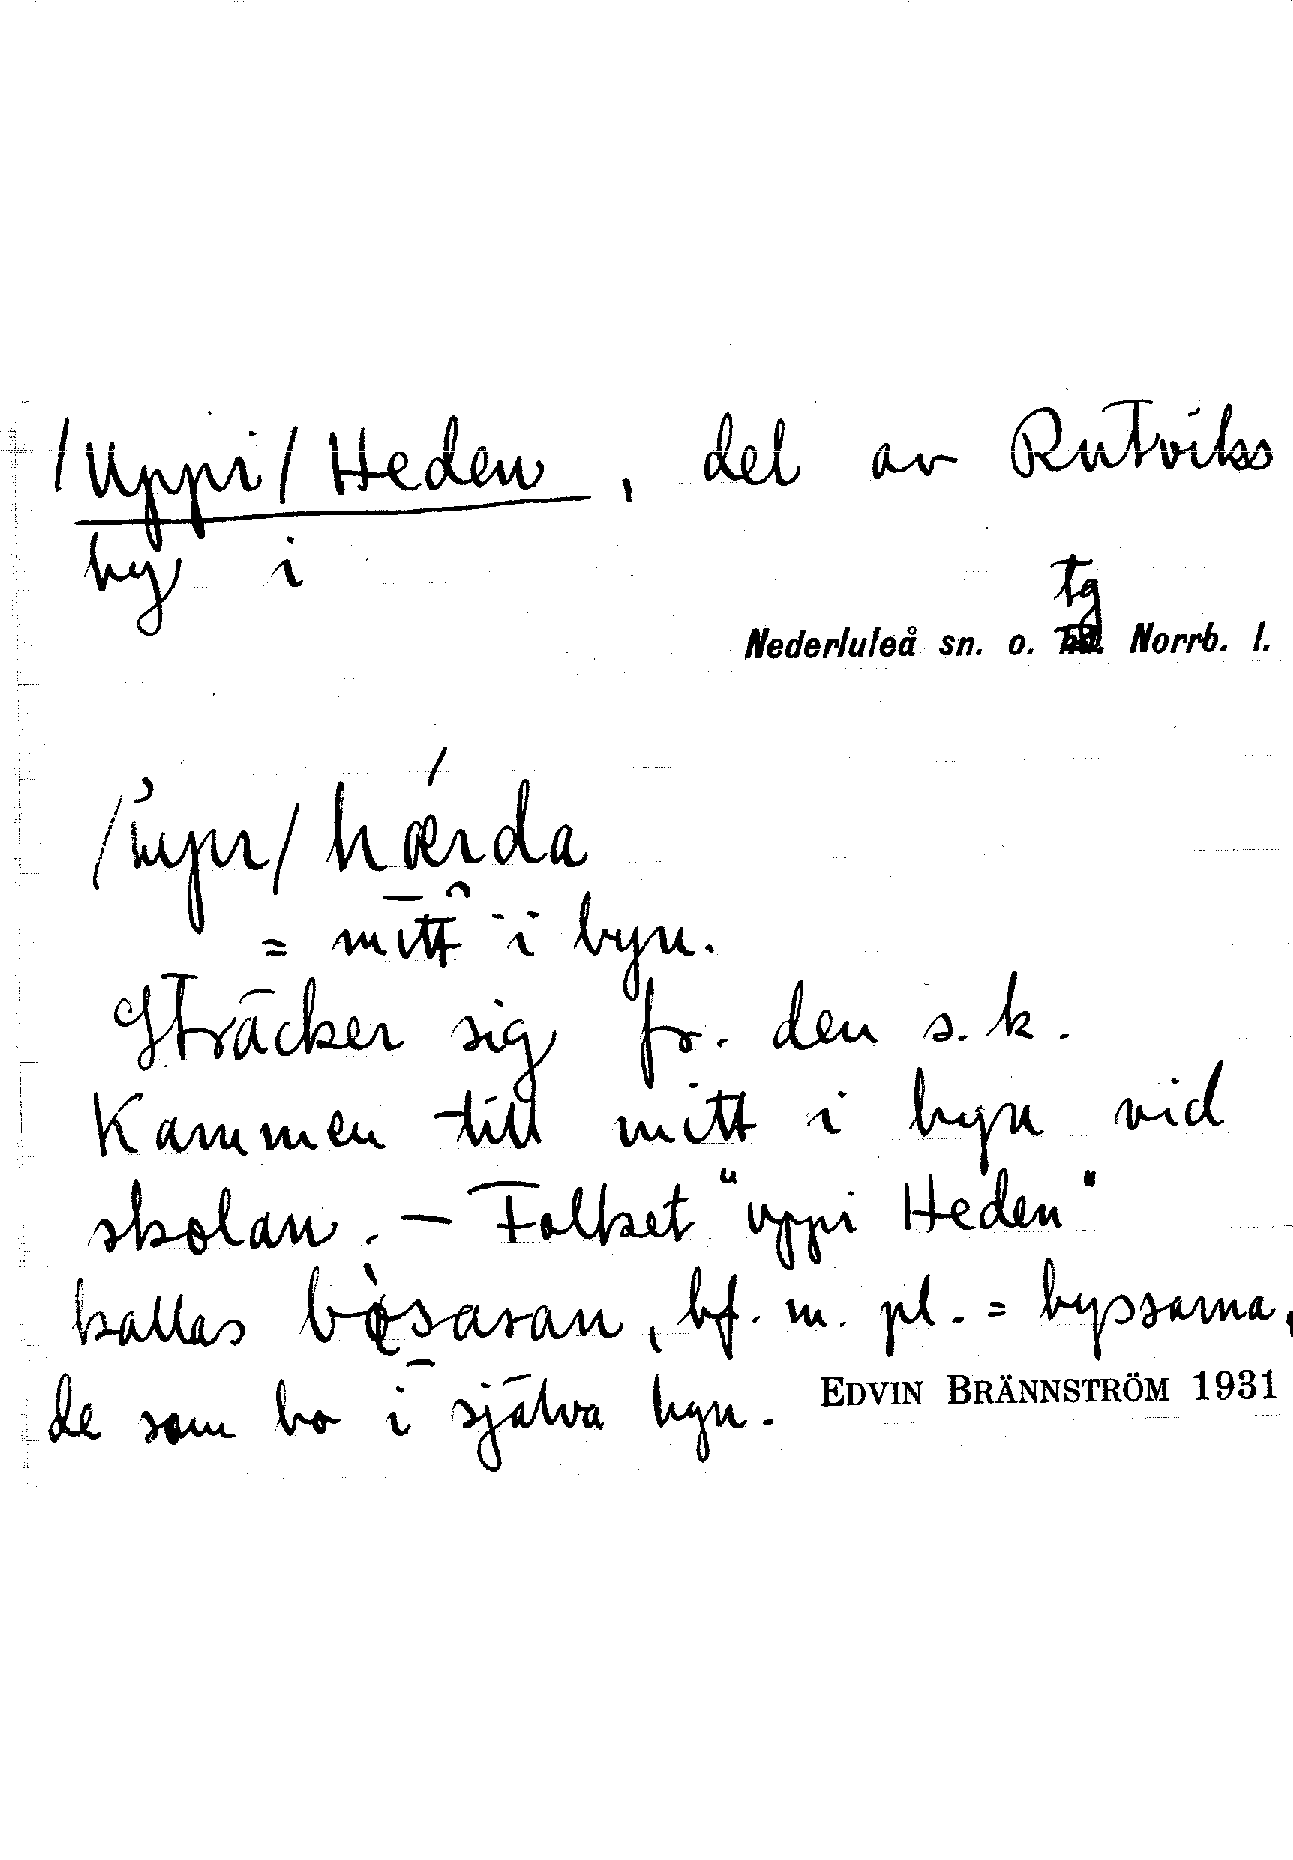 /Uppi/ Heden, del av Rutviks
by i
tg
Nederluleå sn. o. Norrb. l.
hǽrda
= mitt i byn.
Sträcker sig fr. den s.k.
Kammen till mitt i byn vid
skolan. — Folket "uppi Heden"
kallas bf. m. pl. = byssarna,
de som bo i själva byn. EDVIN BRÄNNSTRÖM 1931